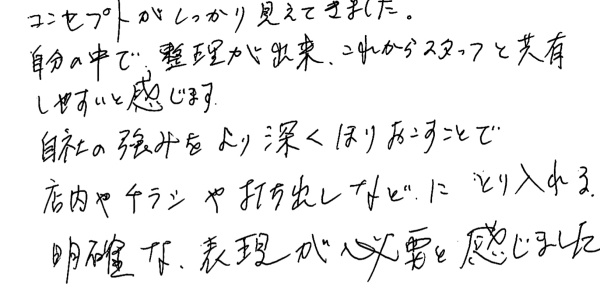 コンセプトがしっかり見えてきました。
自分の中で、整理が出来、これからスタッフと共有
しやすいと感じます。
自社の強みをより深くほりおこすことで
店内やチラシや打ち出しなど、に とり入れる、
明確な、表現が必要と感じました